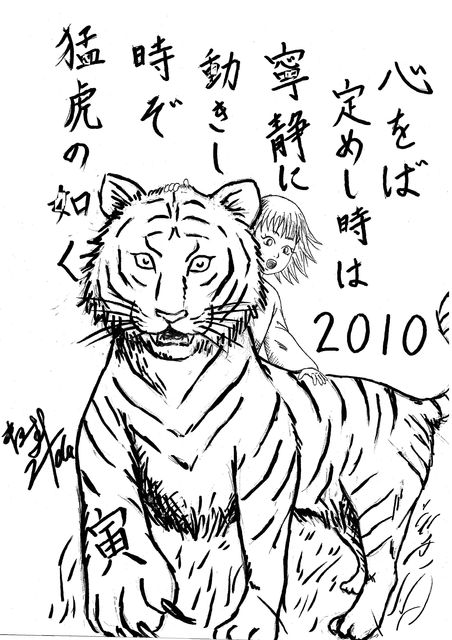 心をば
定めし時は
寧静に
動きし
時ぞ
猛虎の如く
2010
寅